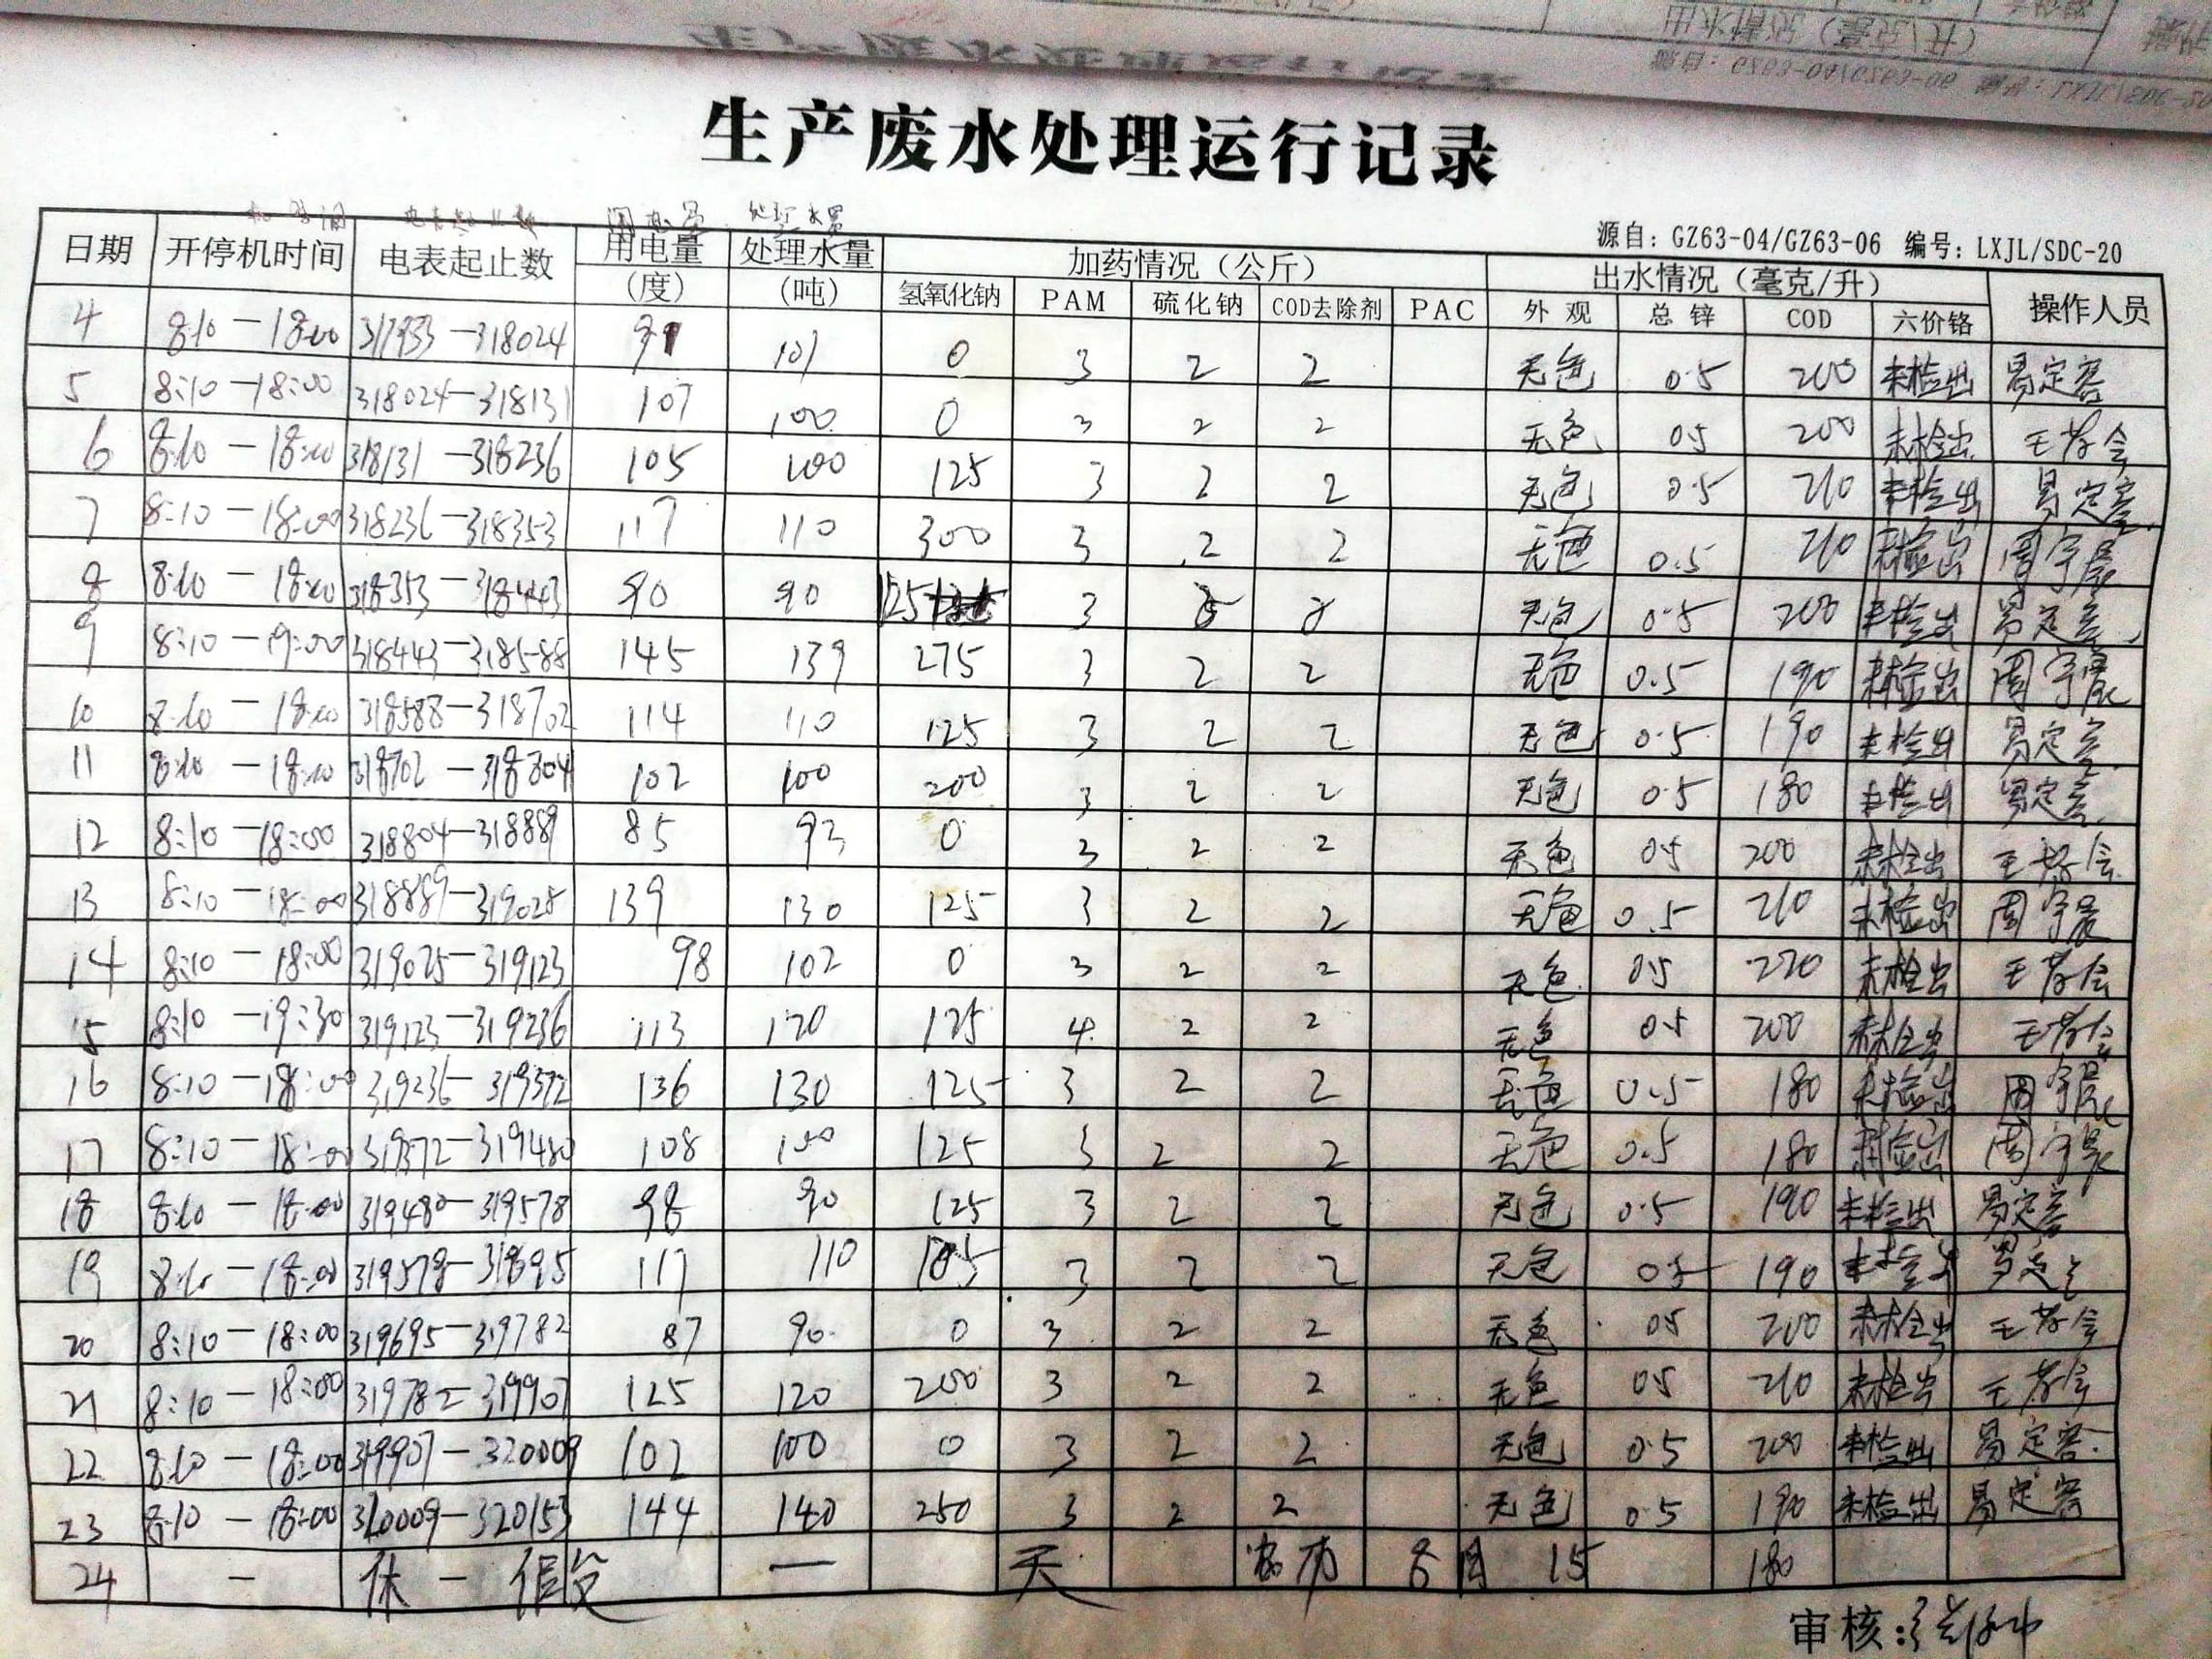 生产废水处理运行记录
源自：GZ63-04/GZ63-06 编号：LXJL/SDC-20
日期 开停机时间 电表起止数 用电量（度） 处理水量（吨） 加药情况（公斤） 出水情况（毫克/升） 操作人员
氢氧化钠 PAM 硫化钠 COD去除剂 PAC 外观 总锌 COD 六价铬
4 8:10-18:00 317933-318024 91 101 0 3 2 2 无色 0.5 200 未检出 易定客
5 8:10-18:00 318024-318131 107 100 0 3 2 2 无色 0.5 200 未检出
6 8:10-18:00 318131-318236 105 100 125 3 2 2 无色 0.5 210 未检出 易定客
7 8:10-18:00 318236-318353 117 110 300 3 2 2 无色 0.5 210 未检出 周宇晨
8 8:10-18:00 318353-318443 90 90 125 3 无色 0.5 200 未检出 易定客
9 8:10-19:00 318443-318588 145 139 275 3 2 2 无色 0.5 190 未检出 周宇晨
10 8:10-18:00 318588-318702 114 110 125 3 2 2 无色 0.5 190 未检出 易定客
11 8:10-18:00 318702-318804 102 100 200 3 2 2 无色 0.5 180 未检出 易定客
12 8:10-18:00 318804-318889 85 93 0 3 2 2 无色 0.5 200 未检出
13 8:10-18:00 318889-319028 139 130 125 3 2 2 无色 0.5 210 未检出 周宇晨
14 8:10-18:00 319025-319123 98 102 0 3 2 2 无色 0.5 220 未检出
15 8:10-19:30 319123-319236 113 120 125 4 2 2 无色 0.5 200 未检出
16 8:10-18:00 319236-319372 136 130 125 3 2 2 无色 0.5 180 未检出 周宇晨
17 8:10-18:00 319372-319480 108 100 125 3 2 2 无色 0.5 180 未检出 周宇晨
18 8:10-18:00 319480-319578 98 90 125 3 2 2 无色 0.5 190 未检出 易定客
19 8:10-18:00 319578-319695 117 110 3 2 2 无色 0.5 190 未检出
20 8:10-18:00 319695-319782 87 90 0 3 2 2 无色 0.5 200 未检出
21 8:10-18:00 319782-319907 125 120 200 3 2 2 无色 0.5 210 未检出
22 8:10-18:00 319907-320009 102 100 0 3 2 2 无色 0.5 200 未检出 易定客
23 8:10-18:00 320009-320153 144 140 250 3 2 2 无色 0.5 190 未检出 易定客
24 - 休 - 一 天 15 180
审核：